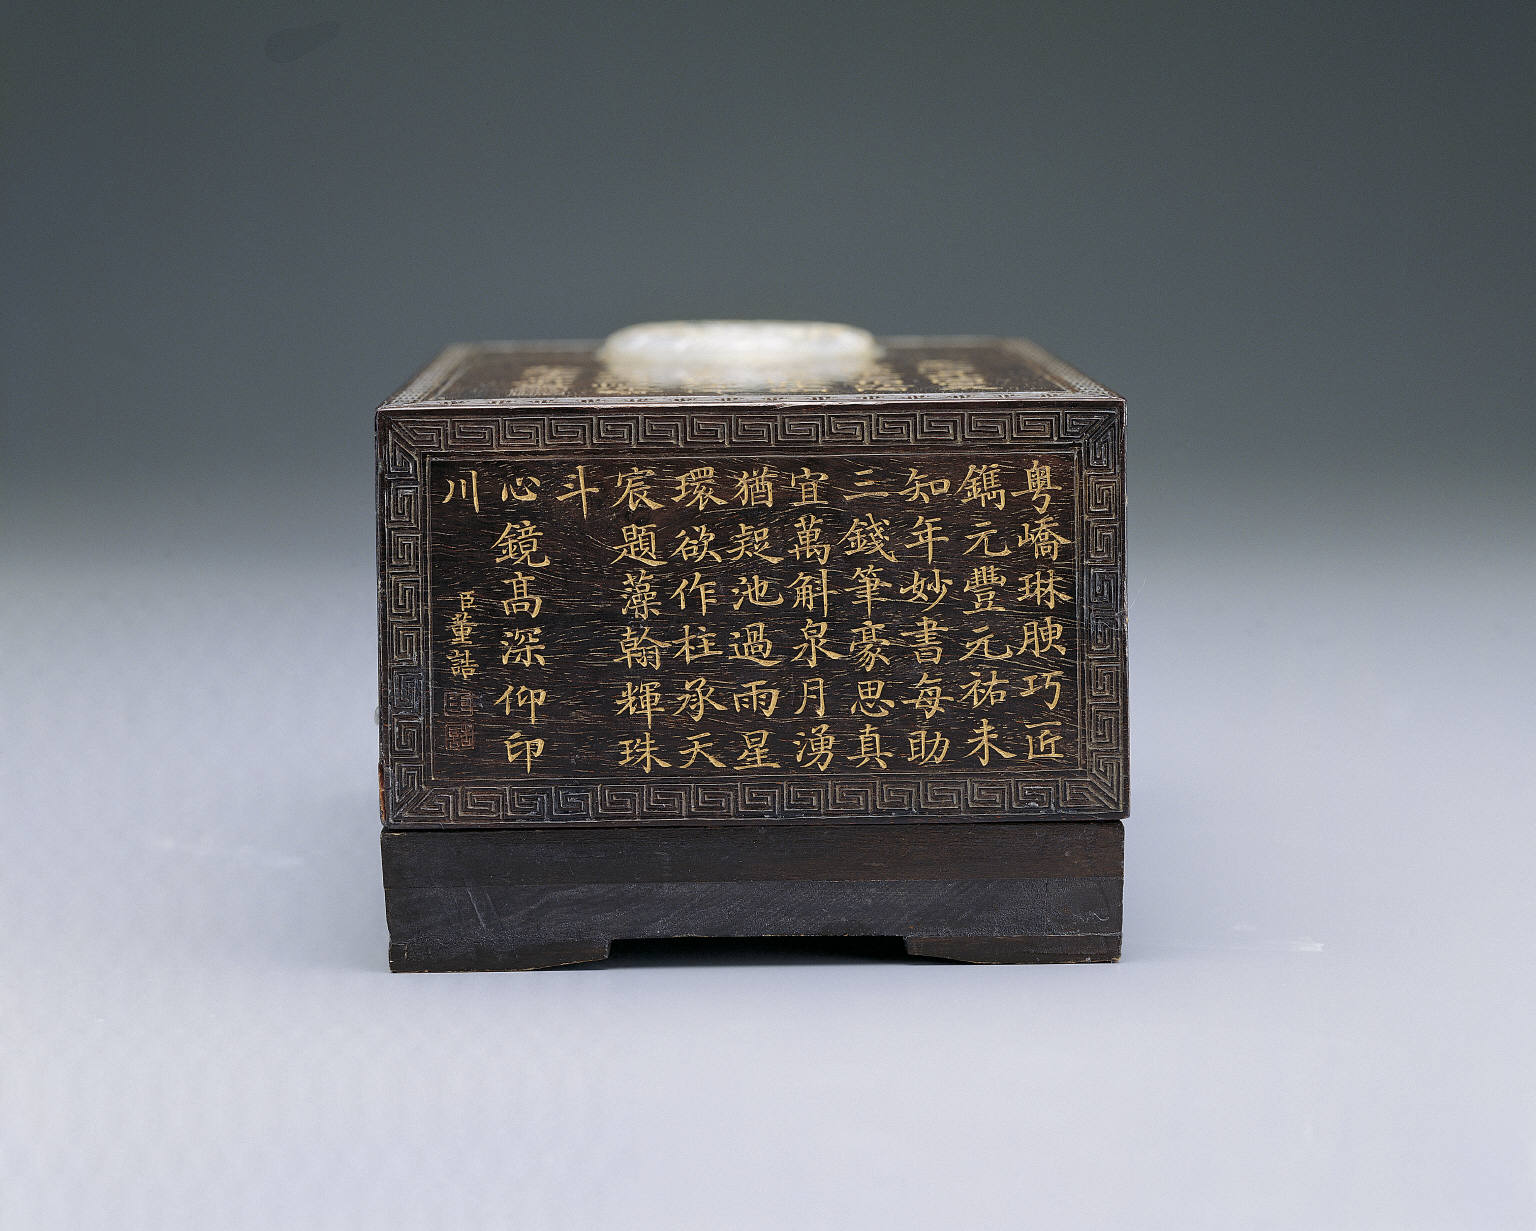 粤嶠琳腴巧匠
鐫元豐元祐未
知年妙書每助
三錢筆豪思真
宜萬斛泉月湧
猶疑池過雨星
環欲作柱承天
宸題藻翰輝珠
斗
心鏡高深仰印
川
臣董誥